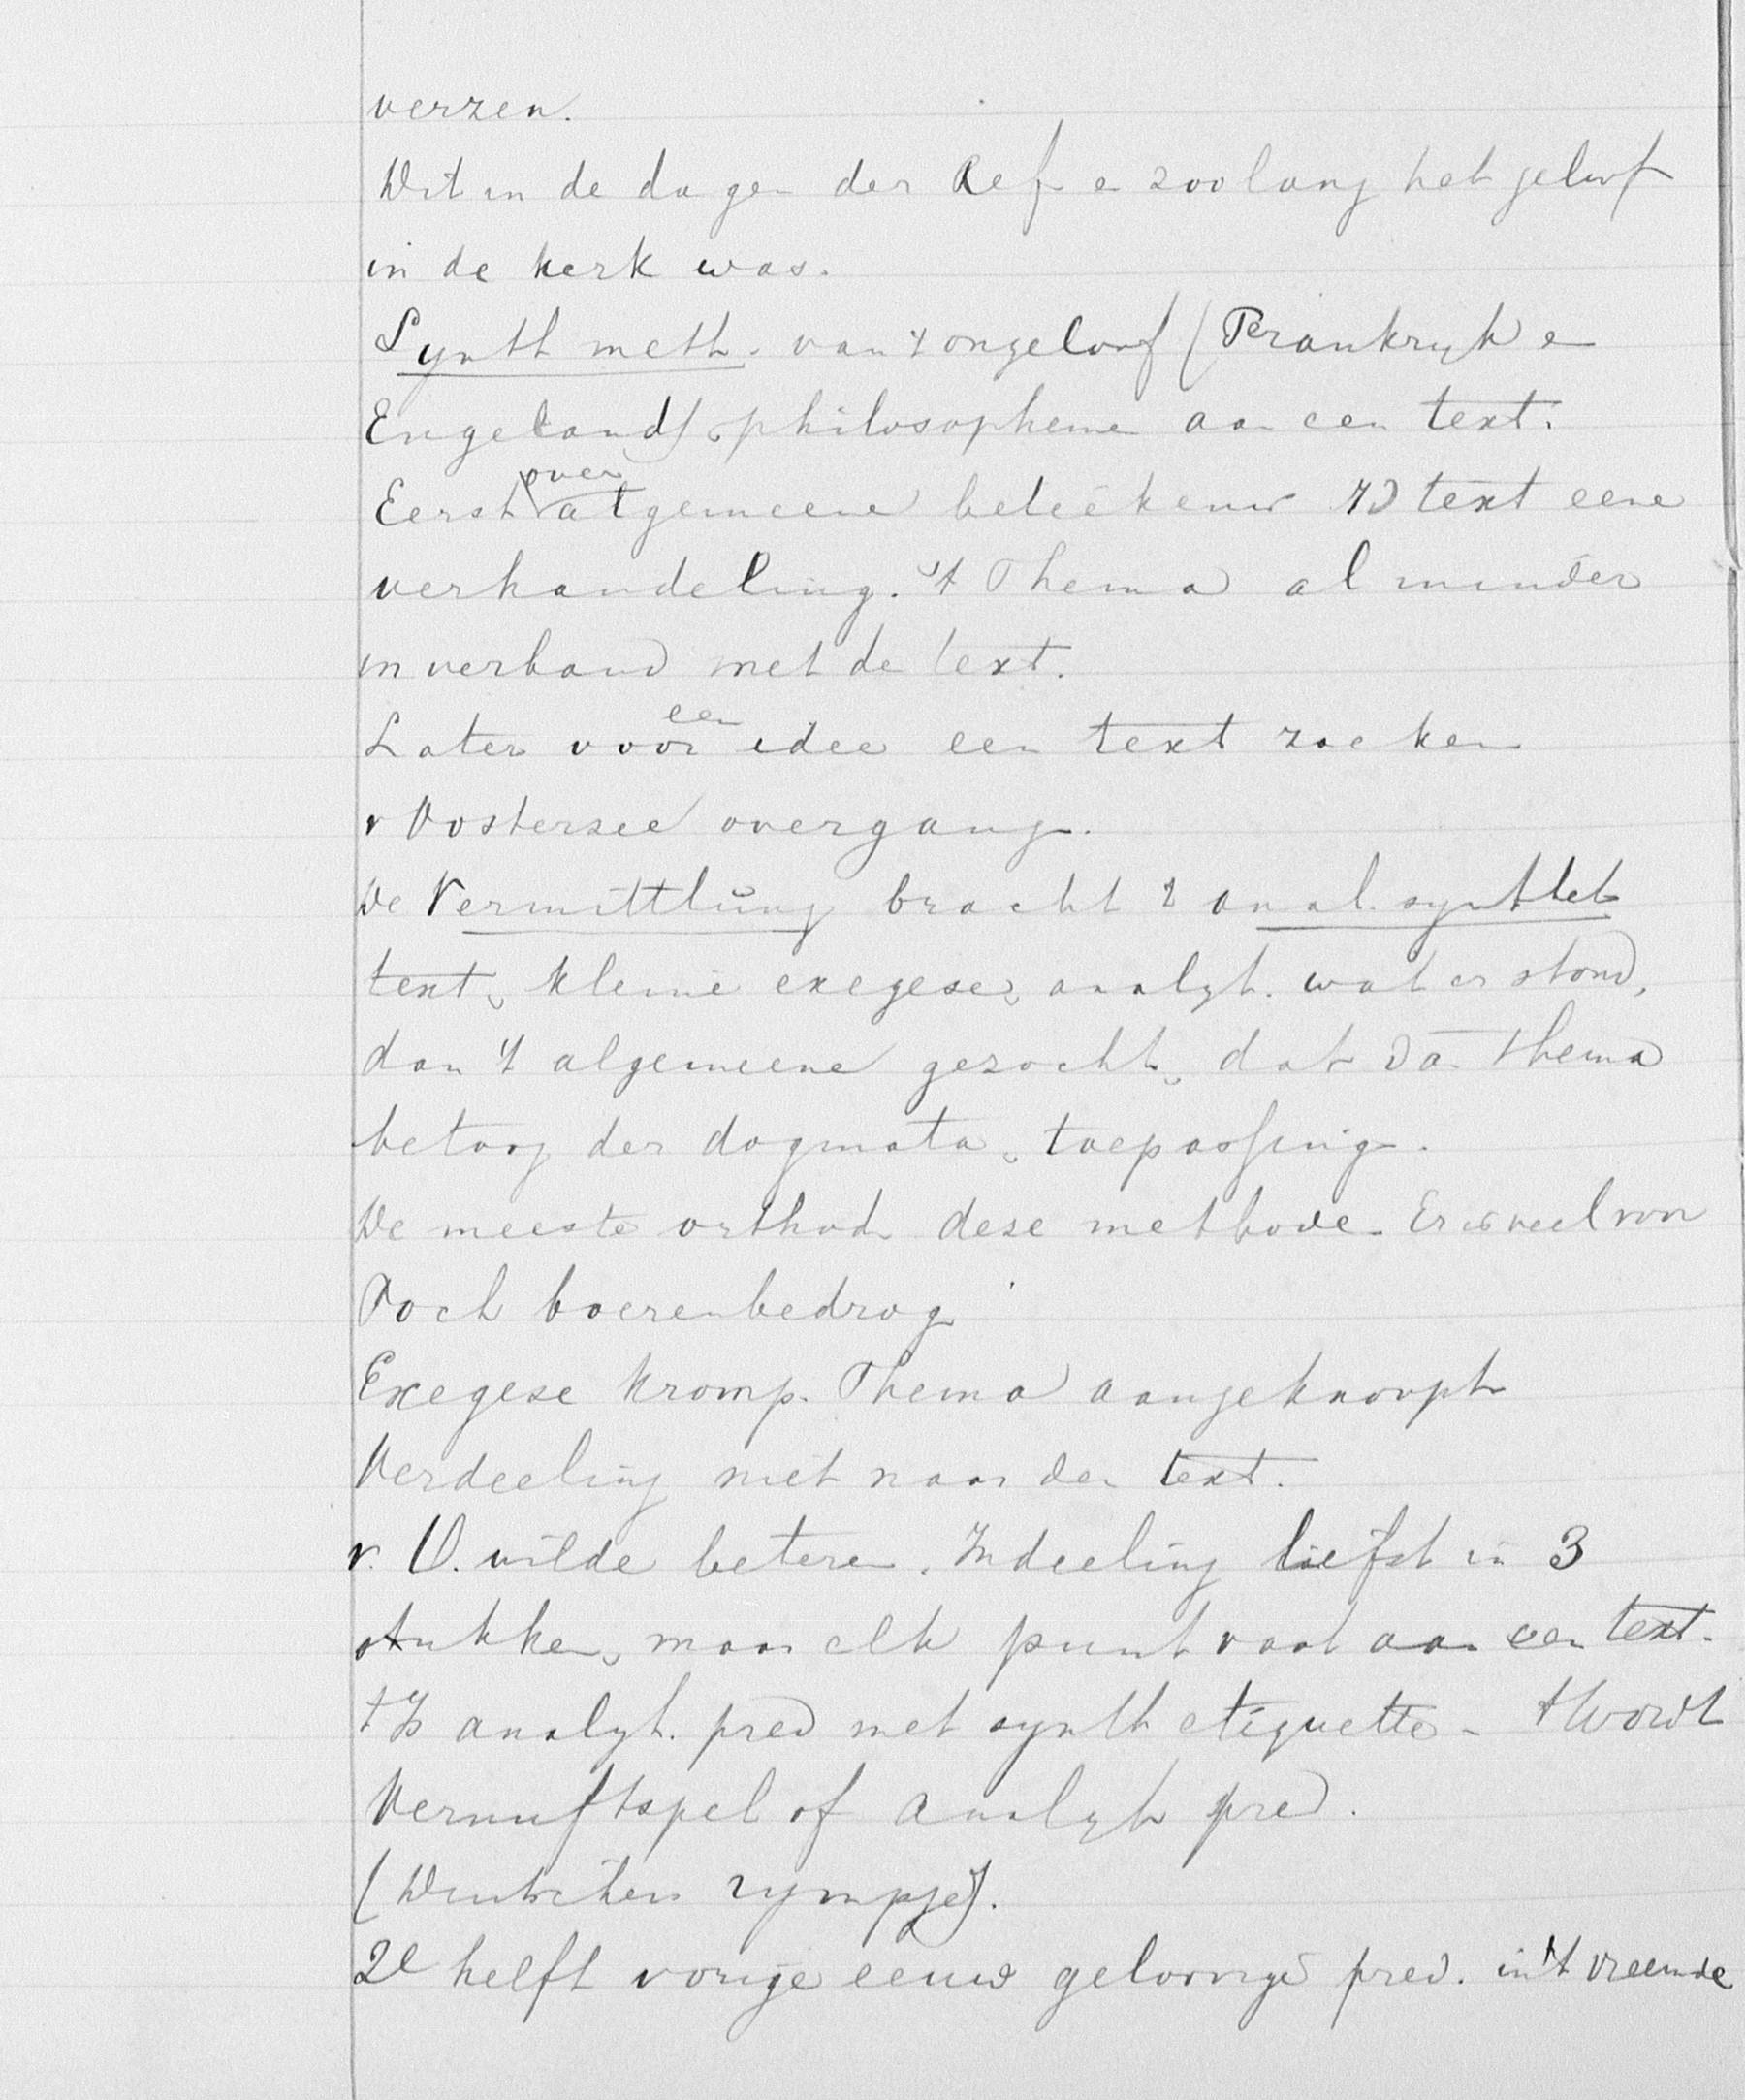 verzen.
Dit in de dagen der Ref en zoolang het geloof
in de kerk was.
Synth meth. van 't ongeloof (Frankryk en
Engeland) philosophemen aan een text.
Eerst over algemeene beteekenis v d text eene
verhandeling. 't Thema al minder
in verband met de text.
Later voor een idee een text zoeken
v Oostersee overgang.
De Vermittlŭng bracht 't anal. synthet
text, kleine exegese, analyt. wat er stond,
dan 't algemeene gezocht, dat dan thema
betoog der dogmata, toepassing.
De meeste orthod deze methode. Er is veel von
Toch boerenbedrog
Exegese kromp. Thema aangeknoopt
Verdeeling niet naar den text.
v. O. wilde beteren. Indeeling liefst in 3
stukken, maar elk punt vast aan een text.
't Is analyt. pred met synth etiquette - 't Wordt
Vernuftspel of Analyt pred.
( rympje).
2e helft vorige eeuw geloovige pred. in 't vreemde